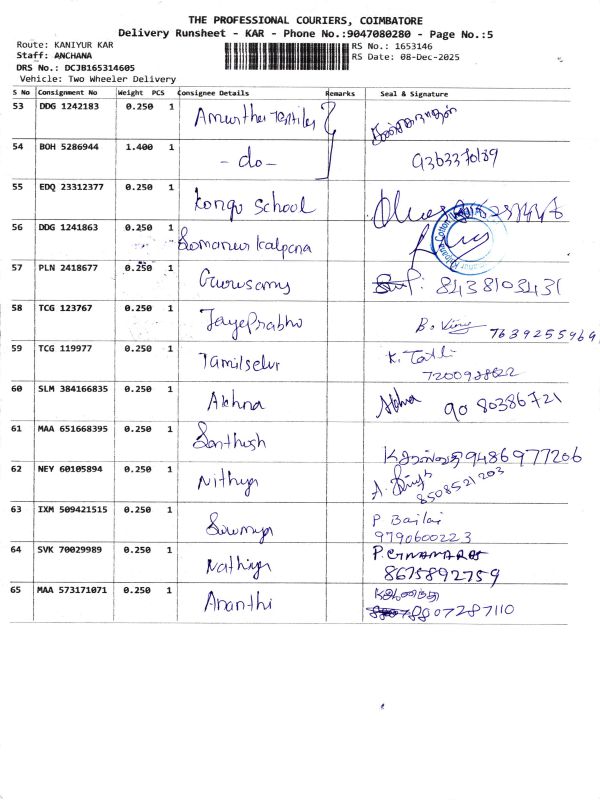 THE PROFESSIONAL COURIERS, COIMBATORE
Delivery Runsheet - KAR - Phone No.:9047080280 - Page No.:5
Route: KANIYUR KAR
RS No.: 1653146
Staff: ANCHANA
RS Date: 08-Dec-2025
DRS No.: DCJB165314605
Vehicle: Two Wheeler Delivery
S No Consignment No Weight PCS Consignee Details Remarks Seal & Signature
53 DDG 1242183 0.250 1
54 BOH 5286944 1.400 1 - do - 9363370189
55 EDQ 23312377 0.250 1 Kongu School
56 DDG 1241863 0.250 1 Somanur Kalpana
57 PLN 2418677 0.250 1 Gurusamy 8438103431
58 TCG 123767 0.250 1 Jayaprabhu 7639255969
59 TCG 119977 0.250 1 Tamilselvi
60 SLM 384166835 0.250 1 90 80386721
61 MAA 651668395 0.250 1 Santhosh 9486977206
62 NEY 60105894 0.250 1 Nithya
8508521203
63 IXM 509421515 0.250 1 Sowmya
9790600223
64 SVK 70029989 0.250 1 Nathiya
8675892759
65 MAA 573171071 0.250 1 Ananthi
8807287110